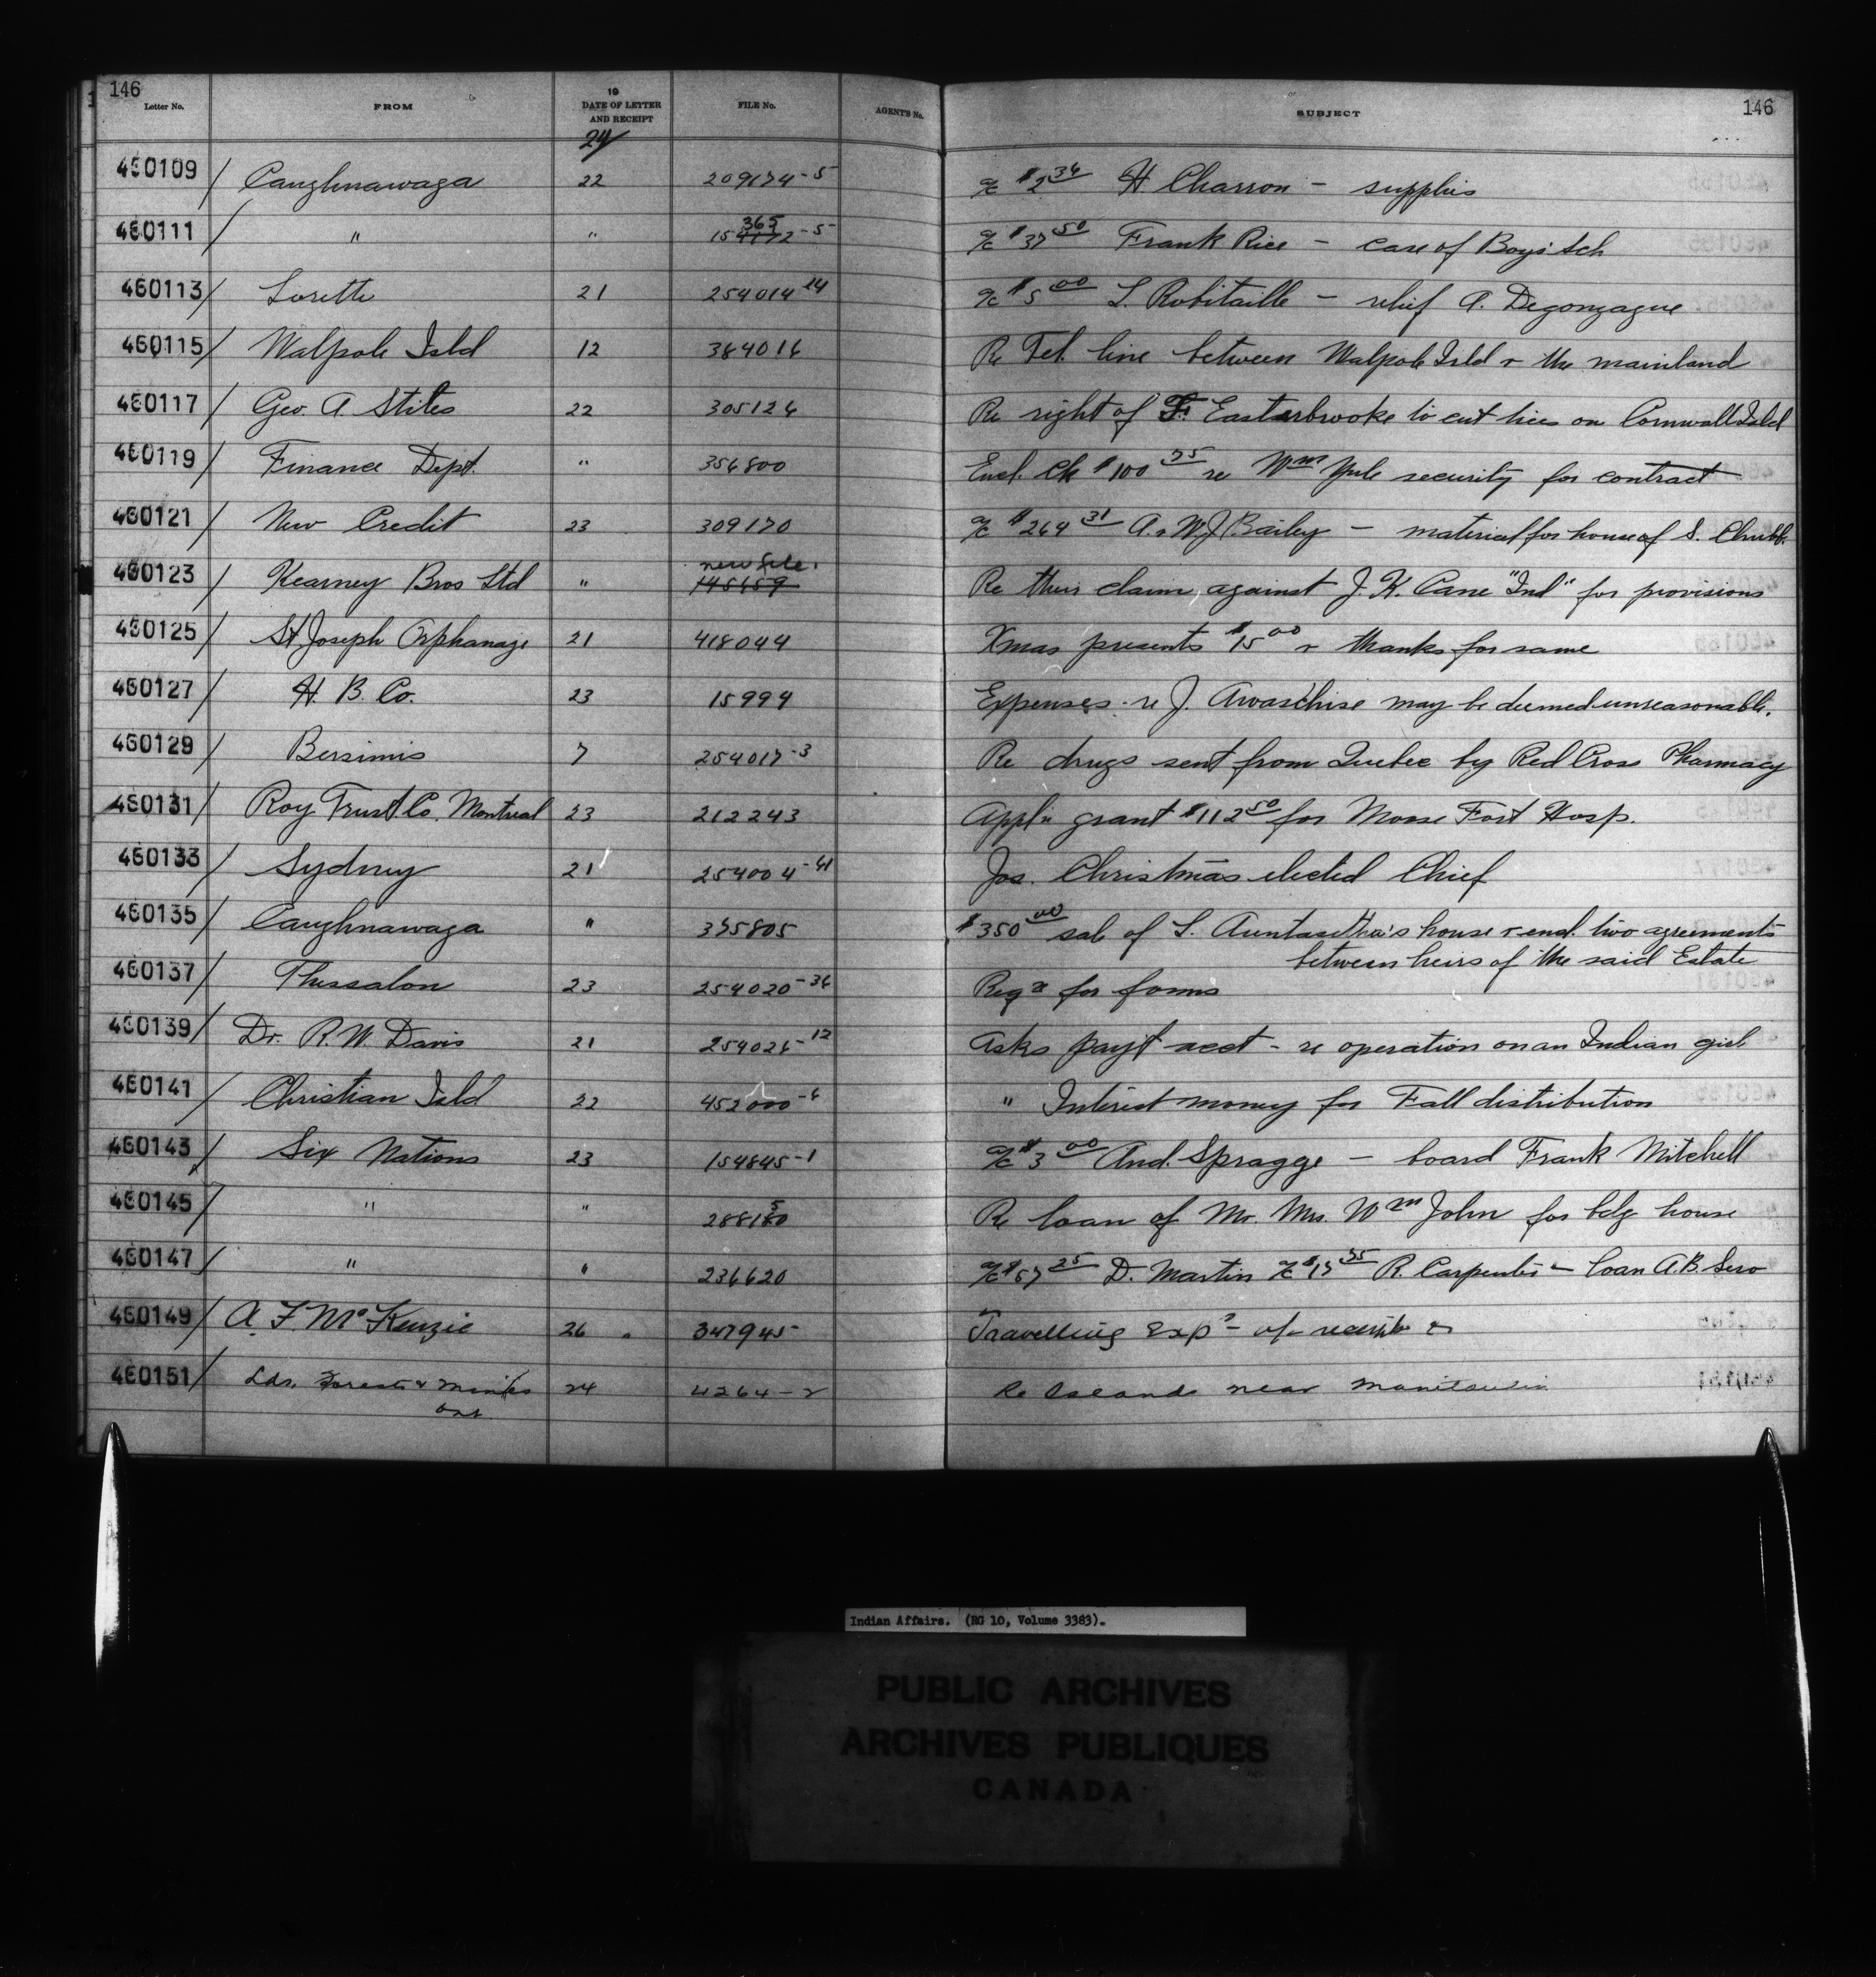 146
Letter No. FROM 19 DATE OF LETTER AND RECEIPT FILE No. AGENT'S No. SUBJECT 146
24/
460109 / Caughnawaga 22 209174-5 a/c $2 34 H Charron - supplies
460111 / " " 365 154172-5 a/c $37 50 Frank Rice - care of Boys' Sch
460113 / Lorette 21 254014 14 a/c $5 00 L. Robitaille - relief A. Degonzague
460115 / Walpole Isld 12 364016 Re Tel. line between Walpole Isld & the mainland
460117 / Geo. A Stiles 22 305126 Re right of F. Easterbrooke to cut trees on Cornwall Isld
460119 / Finance Dept. " 356800 Encl. Ck $100 75 re Wm Yule security for contract
460121 / New Credit 23 309170 a/c $264 31 A. & W J Bailey - material for house of S. Chubb.
460123 / Kearney Bros Ltd " new file. 145659 Re their claim against J. K. Cane "Ind" for provisions
460125 / St Joseph Orphanage 21 418044 Xmas presents $15 00 & thanks for same
460127 / H. B. Co. 23 15994 Expenses re J. Awaschise may be deemed unreasonable.
460129 / Bersimis 7 254017-3 Re drugs sent from Quebec by Red Cross Pharmacy
460131 / Roy Trust Co. Montreal 23 212243 Appl'n grant $112 50 for Moose Fort Hosp.
460133 / Sydney 21 254004-41 Jos. Christmas elected Chief
460135 / Caughnawaga " 375805 $350 00 sale of L. house & encl. two agreements
between heirs of the said Estate
460137 / Thessalon 23 254020-36 Reqn for forms
460139 / Dr. R. W. Davis 21 254026-12 Asks payt acct - re operation on an Indian girl
460141 / Christian Isld 22 452000-6 " Interest money for Fall distribution
460143 / Six Nations 23 154845-1 a/c $3 00 And. Spragge - board Frank Mitchell
460145 / " " 288150 Re loan of Mr. Mrs. Wm John for bdg house
460147 / " " 236620 a/c $57 25 D. Martin a/c $17 75 R. Carpenter - loan A.B. Sero
460149 / A. F. McKenzie 26 347945 Travelling Exps -
460151 / Lds, Forests & Mines 24 4264-2 Re Islands near Manitoulin
Ont
Indian Affairs. (RG 10, Volume 3383).
PUBLIC ARCHIVES
ARCHIVES PUBLIQUES
CANADA